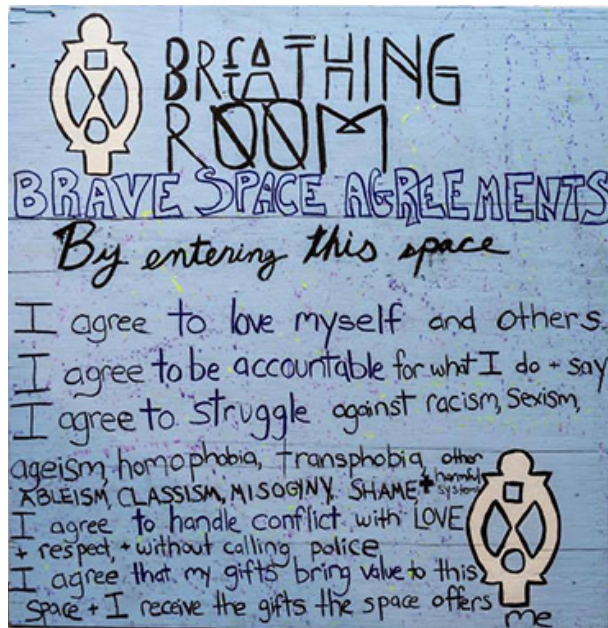 BREATHING
ROOM
BRAVE SPACE AGREEMENTS
By entering this space
I agree to love myself and others
I agree to be accountable for what I do + say
I agree to struggle against racism, sexism,
ageism, homophobia, transphobia, other
ABLEISM, CLASSISM, MISOGINY, SHAME + harmful systems
I agree to handle conflict with LOVE
+ respect, + without calling police
I agree that my gifts bring value to this
space + I receive the gifts the space offers
me